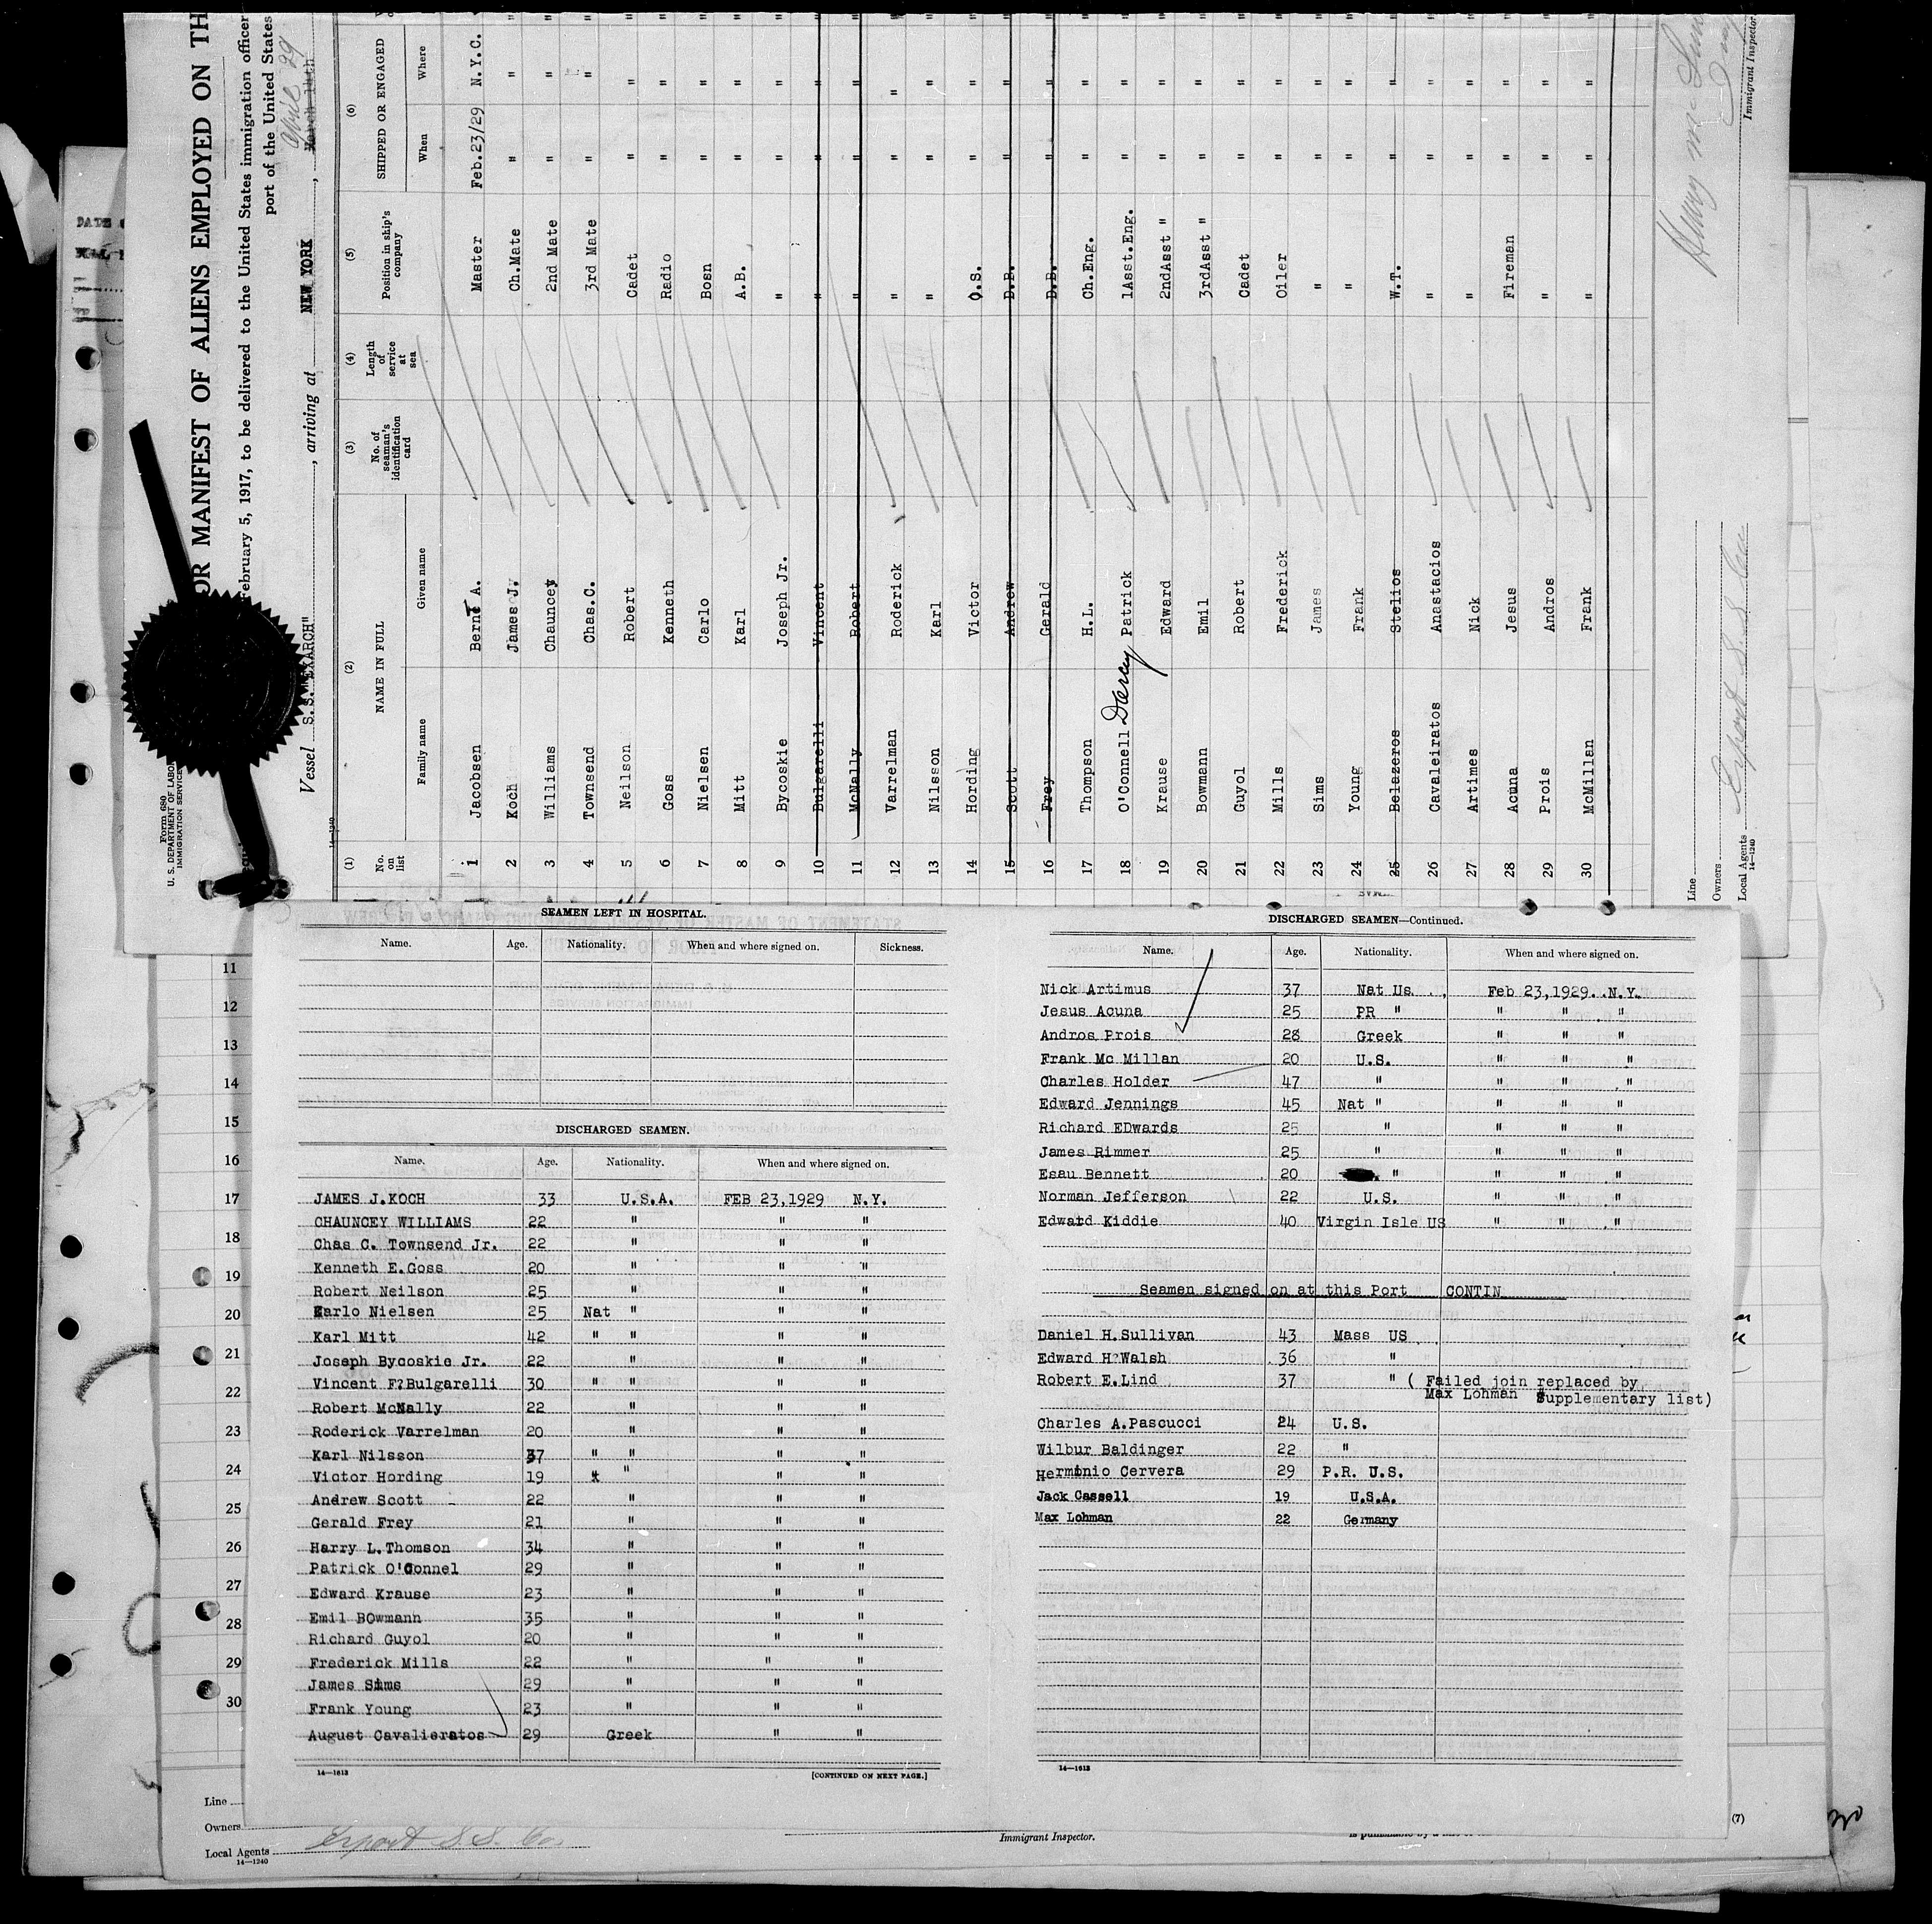 Form 680
U. S. DEPARTMENT OF LABOR
IMMIGRATION SERVICE
OR MANIFEST OF ALIENS EMPLOYED ON TH
February 5, 1917, to be delivered to the United States immigration officer
port of the United States
Vessel S.S. "EXARCH", arriving at NEW YORK, March 14th April 29
14—1240
(1) (2) (3) (4) (5) (6)
No. on list NAME IN FULL No. of seaman's identification card Length of service at sea Position in ship's company SHIPPED OR ENGAGED
Family name Given name When Where
1 Jacobsen Bernt A. Master Feb.23/29 N.Y.C.
2 Koch James J. Ch.Mate " "
3 Williams Chauncey 2nd Mate " "
4 Townsend Chas.C. 3rd Mate " "
5 Neilson Robert Cadet " "
6 Goss Kenneth Radio " "
7 Nielsen Carlo Bosn " "
8 Mitt Karl A.B. " "
9 Bycoskie Joseph Jr. " " "
10 Bulgarelli Vincent " " "
11 McNally Robert " " "
12 Varrelman Roderick " " "
13 Nilsson Karl " " "
14 Hording Victor O.S. " "
15 Scott Andrew D.B. " "
16 Frey Gerald D.B. " "
17 Thompson H.L. Ch.Eng. " "
18 O'Connell Darcy Patrick 1Asst.Eng. " "
19 Krause Edward 2ndAsst " " "
20 Bowmann Emil 3rdAsst " " "
21 Guyol Robert Cadet " "
22 Mills Frederick Oiler " "
23 Sims James " " "
24 Young Frank " " "
25 Belazeros Stelios W.T. " "
26 Cavaleiratos Anastacios " " "
27 Artimes Nick " " "
28 Acuna Jesus Fireman " "
29 Prois Andros " " "
30 McMillan Frank " " "
Line
Owners Export S S Co
Local Agents
14—1240
Immigrant Inspector.
11
12
13
14
15
16
17
18
19
20
21
22
23
24
25
26
27
28
29
30
SEAMEN LEFT IN HOSPITAL.
Name. Age. Nationality. When and where signed on. Sickness.
DISCHARGED SEAMEN.
Name. Age. Nationality. When and where signed on.
JAMES J.KOCH 33 U.S.A. FEB 23,1929 N.Y.
CHAUNCEY WILLIAMS 22 " " "
Chas C. Townsend Jr. 22 " " "
Kenneth E.Goss 20 " " "
Robert Neilson 25 " " "
Karlo Nielsen 25 Nat " " "
Karl Mitt 42 " " " "
Joseph Bycoskie Jr. 22 " " "
Vincent F?Bulgarelli 30 " " " "
Robert McNally 22 " " "
Roderick Varrelman 20 " " "
Karl Nilsson 37 " " " "
Victor Hording 19 " " "
Andrew Scott 22 " " "
Gerald Frey 21 " " "
Harry L.Thomson 34 " " "
Patrick O'Connel 29 " " "
Edward Krause 23 " " "
Emil BOwmann 35 " " "
Richard Guyol 20 " " "
Frederick Mills 22 " " "
James Simms 29 " " "
Frank Young 23 " " "
August Cavalieratos 29 Greek " "
14—1613 [CONTINUED ON NEXT PAGE.]
DISCHARGED SEAMEN—Continued.
Name. Age. Nationality. When and where signed on.
Nick Artimus 37 Nat Us. Feb 23,1929. N.Y.
Jesus Acuna 25 PR " " " "
Andros Prois 28 Greek " " "
Frank Mc Millan 20 U.S. " " "
Charles Holder 47 " " " "
Edward Jennings 45 Nat " " " "
Richard EDwards 25 " " " "
James Rimmer 25 " " " "
Esau Bennett 20 " " " "
Norman Jefferson 22 U.S. " " "
Edward Kiddie 40 Virgin Isle US " " "
Seamen signed on at this Port CONTIN
Daniel H.Sullivan 43 Mass US
Edward H?Walsh 36 "
Robert E.Lind 37 " ( Failed join replaced by
Max Lohman Supplementary list)
Charles A.Pascucci 24 U.S.
Wilbur Baldinger 22 "
Herminio Cervera 29 P.R. U.S.
Jack Cassell 19 U.S.A.
Max Lohman 22 Germany
14—1613
Line
Owners
Local Agents Export S.S. Co.
14—1240
Immigrant Inspector.
(7)